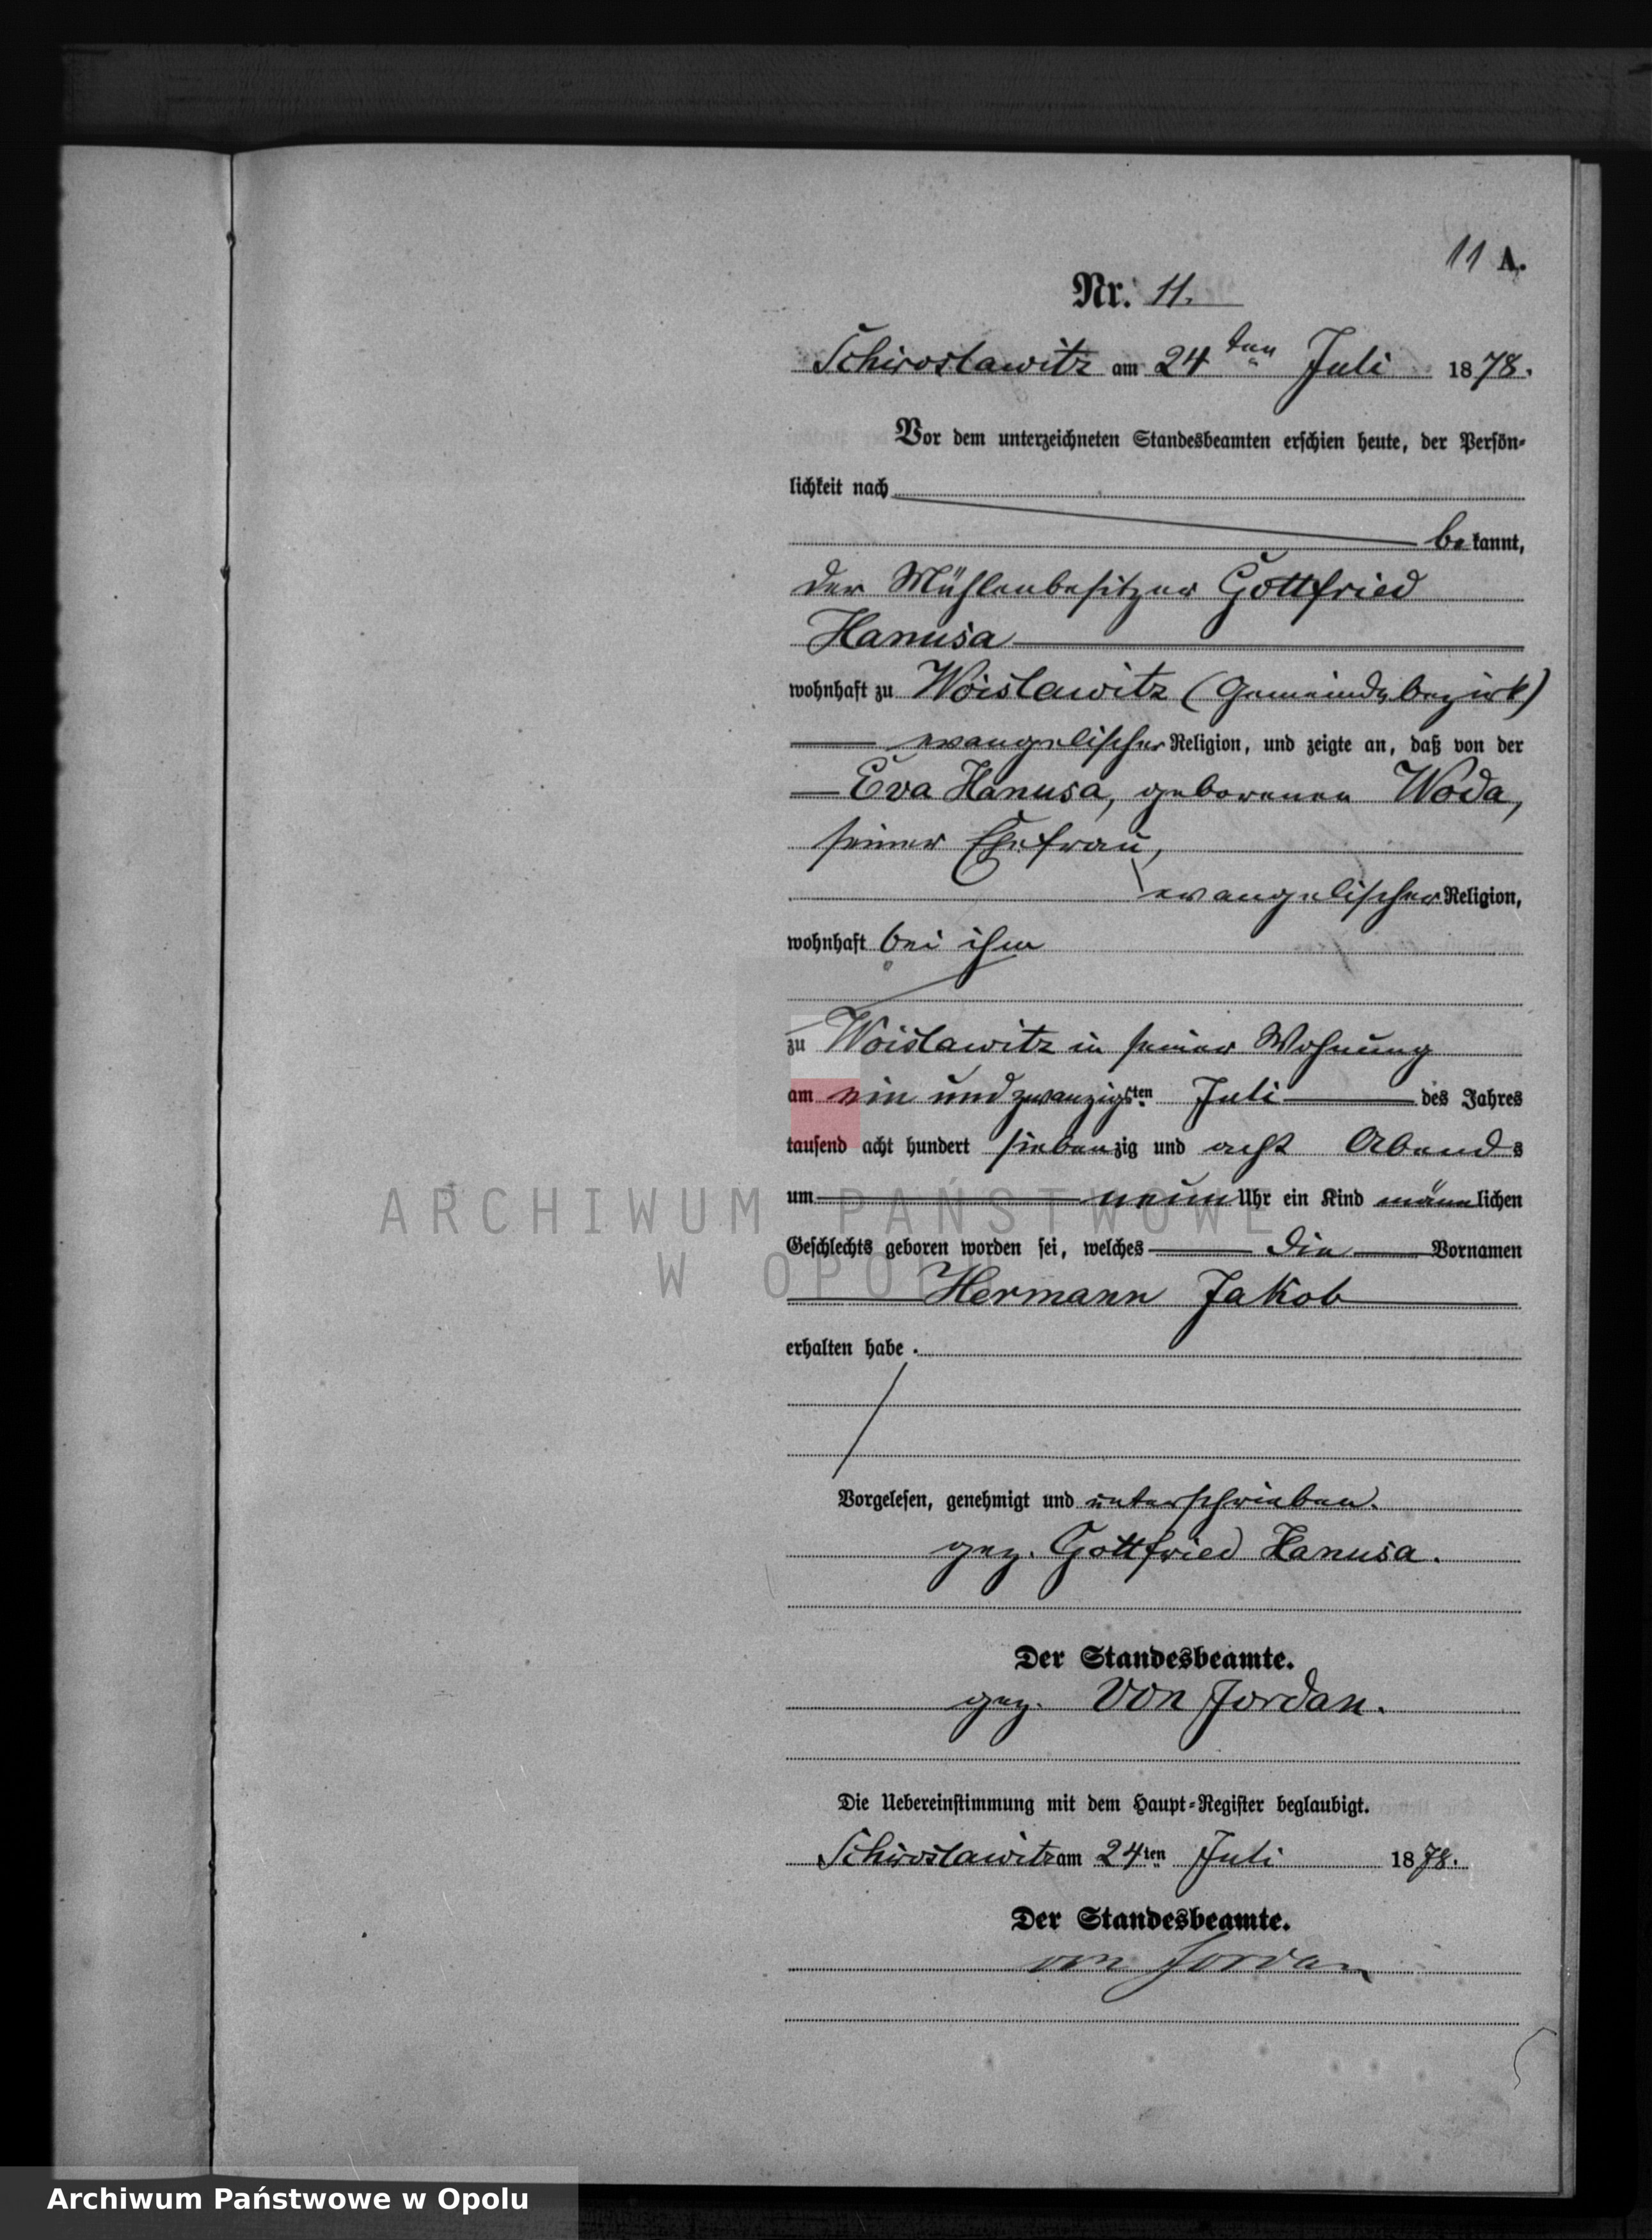 11 A.
Nr. 11.
Schiroslawitz am 24ten Juli 1878.
Vor dem unterzeichneten Standesbeamten erschien heute, der Persön-
lichkeit nach
bekannt,
der Mühlenbesitzer Gottfried
Hanusa
wohnhaft zu Woislawitz (Gemeindebezirk)
evangelischer Religion, und zeigte an, daß von der
Eva Hanusa, geborenen Woda,
seiner Ehefrau,
evangelischer Religion,
wohnhaft bei ihm
zu Woislawitz in seiner Wohnung
am ein und zwanzigsten Juli des Jahres
tausend acht hundert siebenzig und acht Abends
um neun Uhr ein Kind männlichen
Geschlechts geboren worden sei, welches die Vornamen
Hermann Jakob
erhalten habe.
Vorgelesen, genehmigt und unterschrieben.
gez. Gottfried Hanusa.
Der Standesbeamte.
gez. von Jordan.
Die Uebereinstimmung mit dem Haupt-Register beglaubigt.
Schiroslawitz am 24ten Juli 1878.
Der Standesbeamte.
von Jordan
ARCHIWUM PAŃSTWOWE
W OPOLU
Archiwum Państwowe w Opolu